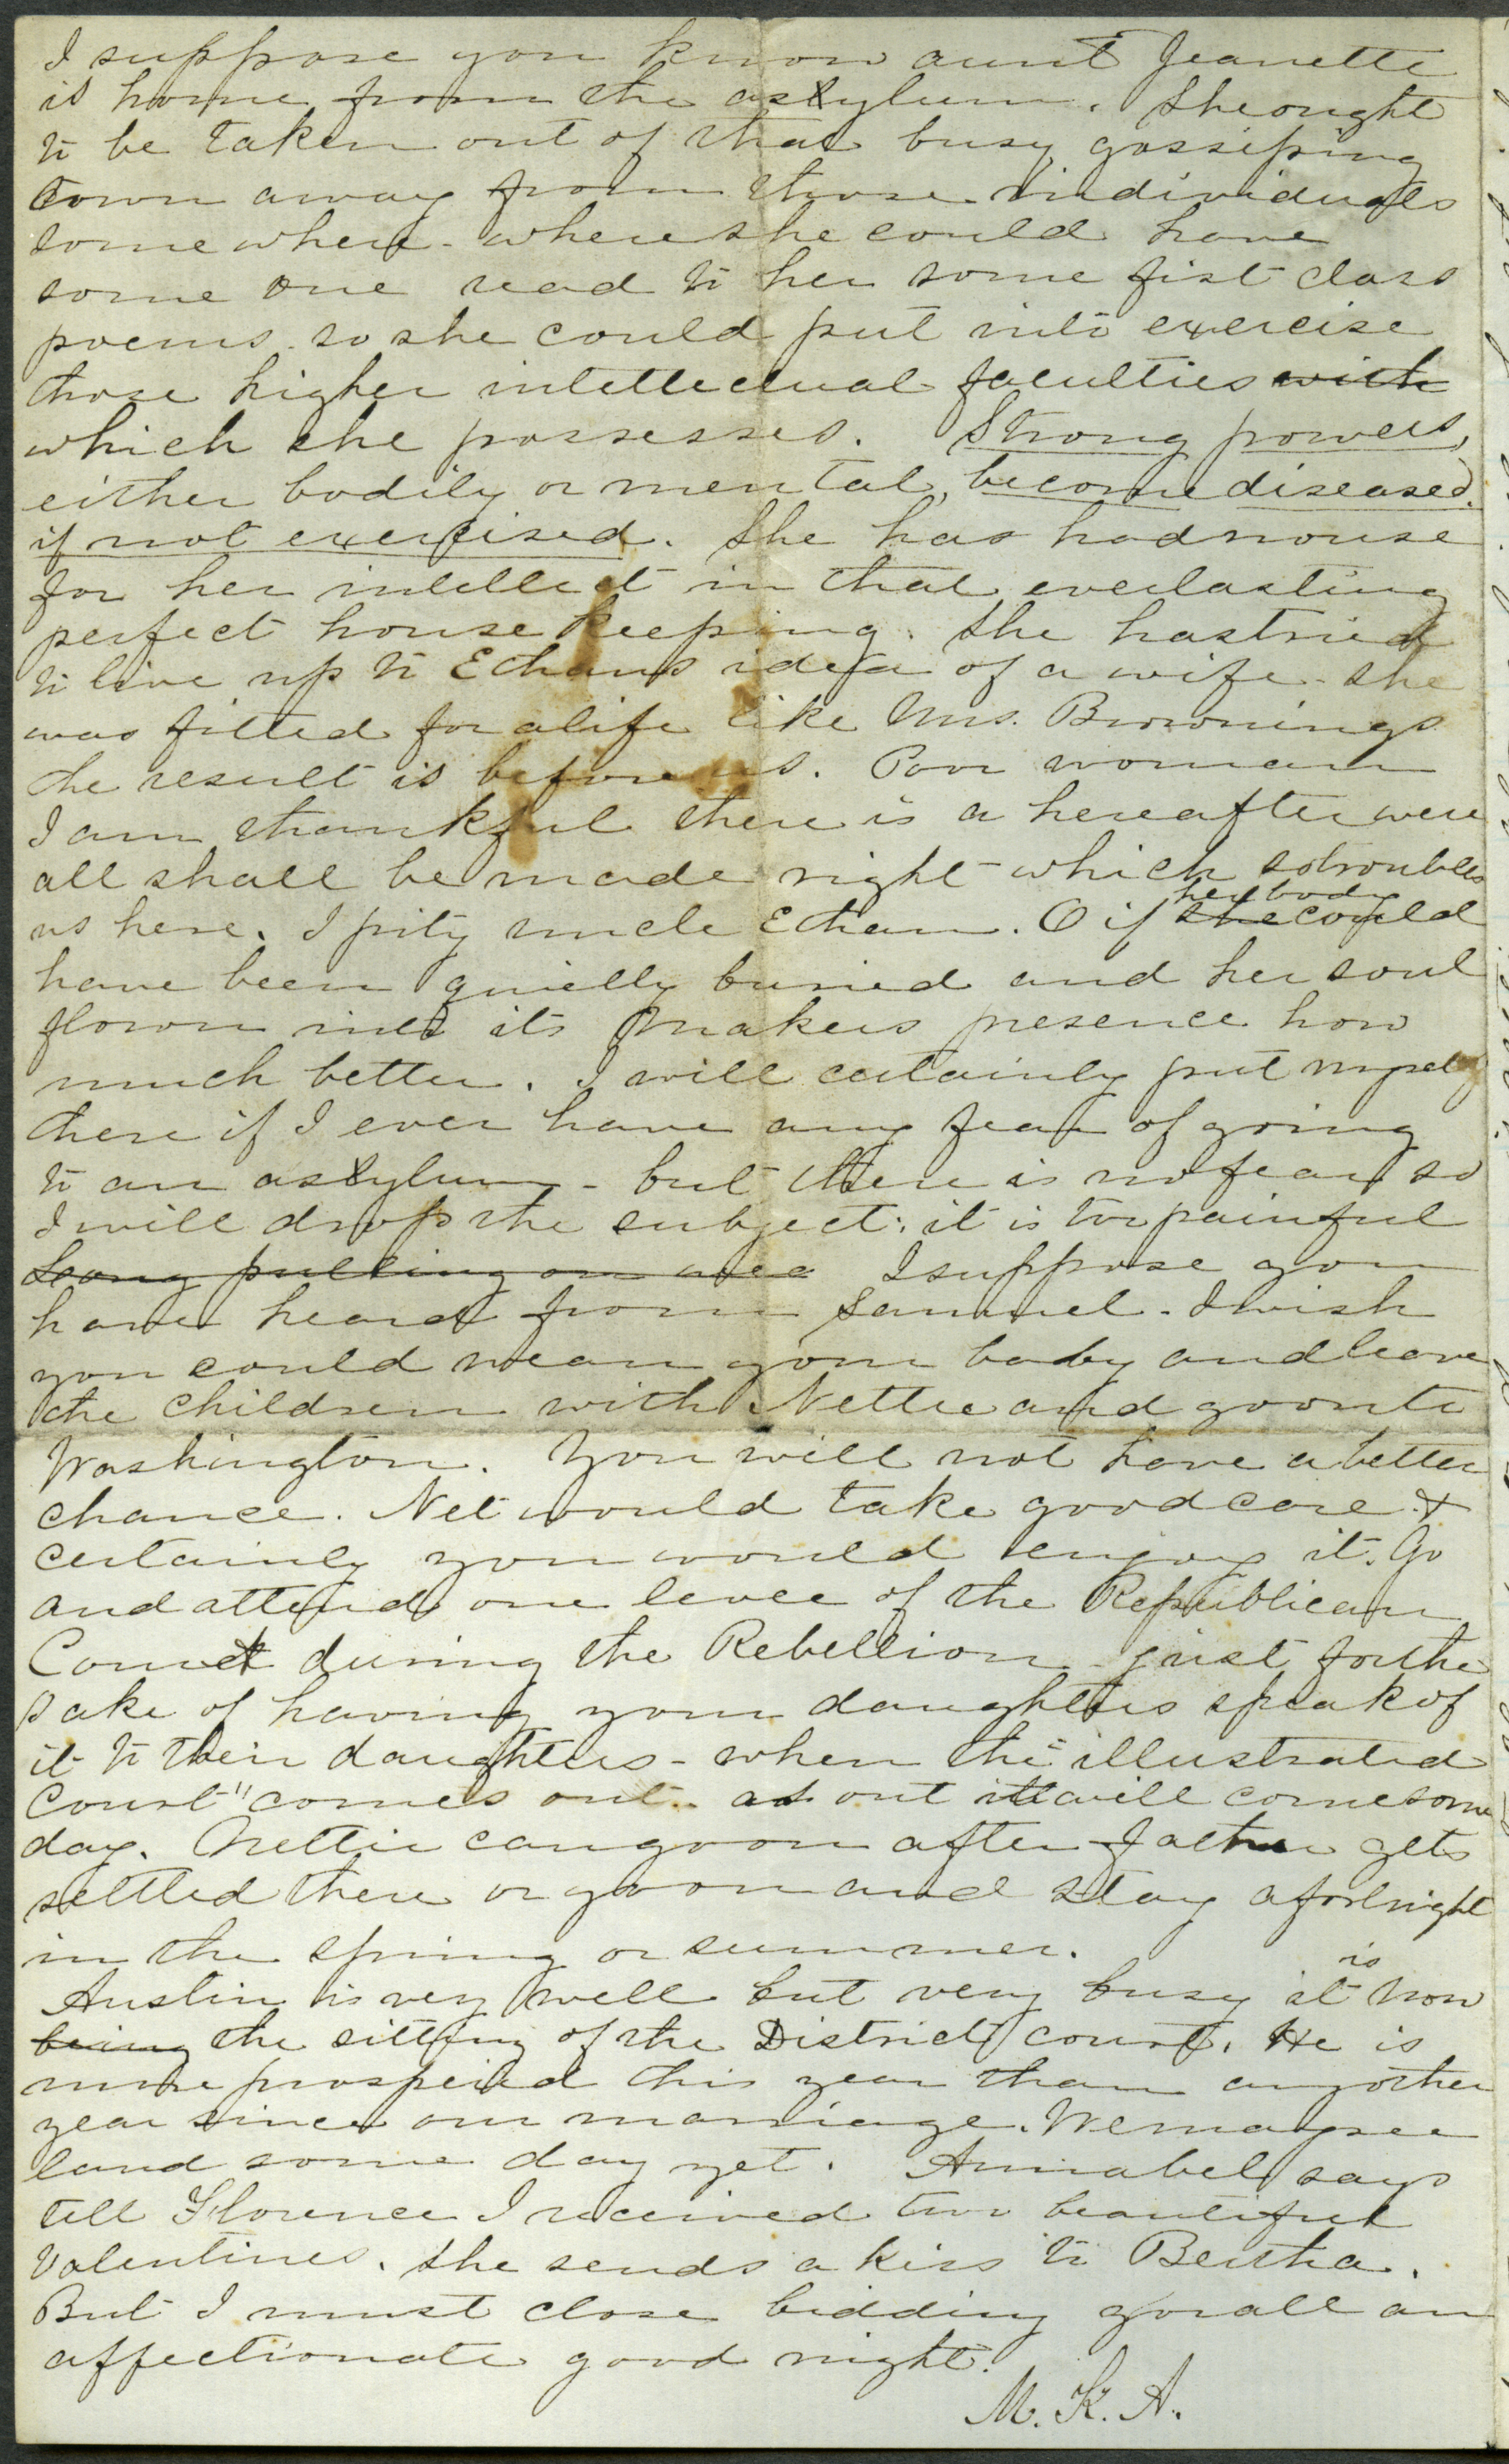 I suppose you know aunt Jeanette
is home from the asylum. She ought
to be taken out of that busy gossiping
town away from those individuals
somewhere - where she could have
some one read to her some fist class
poems so she could put into exercise
those higher intellectual faculties with
which she possesses. Strong powers,
either bodily or mental, become diseased
if not exercised. She has had no use
for her intellect in that everlasting
perfect house keeping. She has tried
to live up to Ethans idea of a wife - she
was fitted for a life like Mrs. Brownings
the result is before us. Poor woman
I am thankful there is a hereafter were
all shall be made right which so troubles
us here. I pity uncle Ethan. O if she her body could
have been quietly buried and her soul
flown into its Makers presence how
much better. I will certainly put myself
there if I ever have any fear of going
to an asylum - but there is no fear so
I will drop the subject: it is too painful
Long pulling on me I suppose you
have heard from Samuel. I wish
you could wean your baby and leave
the children with Nettie and go on to
Washington. You will not have a better
chance. Net would take good care &
certainly you would enjoy it. Go
and attend one levee of the Republican
Court during the Rebellion - just for the
sake of having your daughters speak of
it to their daughters - when the "illustrated
Court" comes out - as out it will come some
day. Nettie can go on after Father gets
settled there or go on and stay a fortnight
in the spring or summer.
Austin is very well but very busy it is now
being the sitting of the District court. He is
more prospered this year than any other
year since our marriage. We may see
land some day yet. Annabel says
tell Florence I received two beautiful
Valentines. She sends a kiss to Bertha.
But I must close bidding you all an
affectionate good night.
M. K. A.